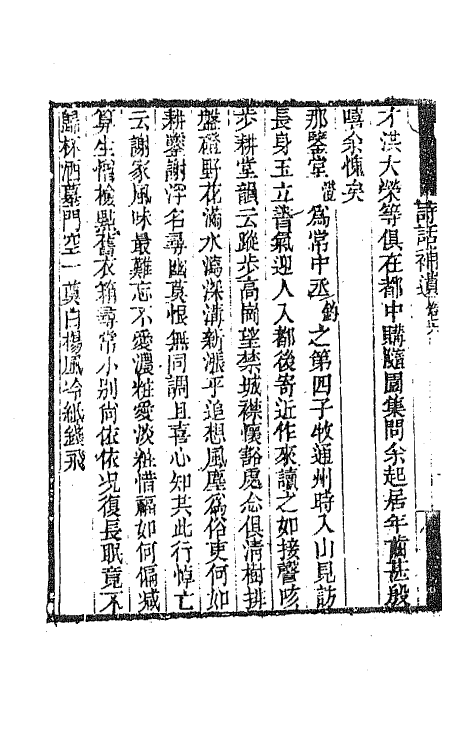 詩話補遺卷六
才洪大榮等俱在都中購隨園集問余起居年齒甚殷
嘻余愧矣
那鑒堂 為常中丞鈞之第四子牧通州時入山見訪
長身玉立書氣迎人入都後寄近作來讀之如接謦咳
步耕堂韻云蹤步高岡望禁城襟懷豁處念俱清樹排
盤磴野花滿水瀉深溝新漲平追想風塵為俗吏何如
耕鑿謝浮名尋幽莫恨無同調且喜心知共此行悼亡
云謝家風味最難忘不愛濃妝愛淡妝惜福如何偏減
算生憎檢點舊衣箱尋常小別尚依依况復長眠竟不
歸杯酒墓門空一奠白楊風冷紙錢飛